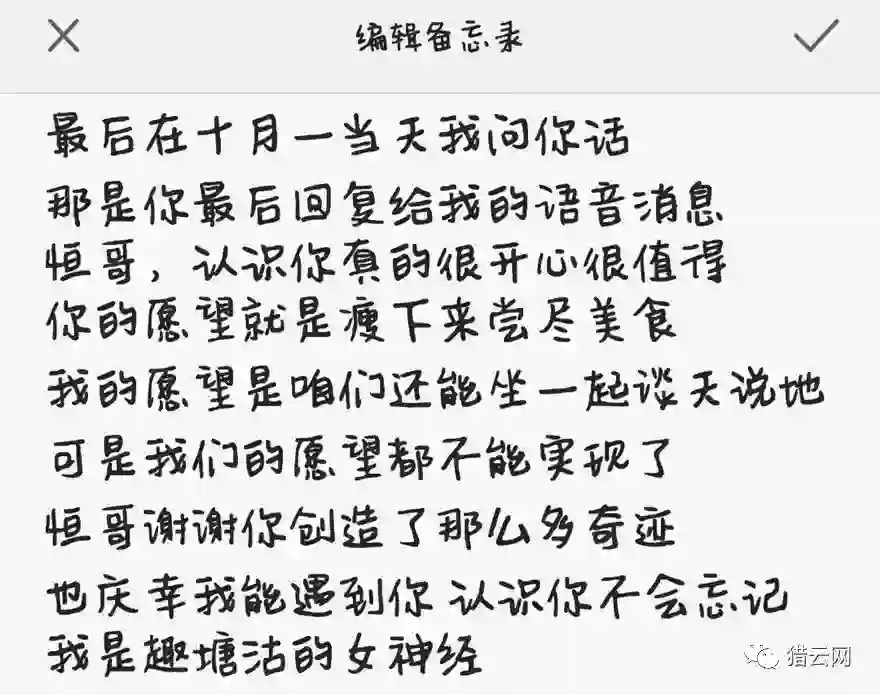 编辑备忘录
最后在十月一当天我问你话
那是你最后回复给我的语音消息
恒哥，认识你真的很开心很值得
你的愿望就是瘦下来尝尽美食
我的愿望是咱们还能坐一起谈天说地
可是我们的愿望都不能实现了
恒哥谢谢你创造了那么多奇迹
也庆幸我能遇到你 认识你不会忘记
我是趣塘沽的女神经
猎云网